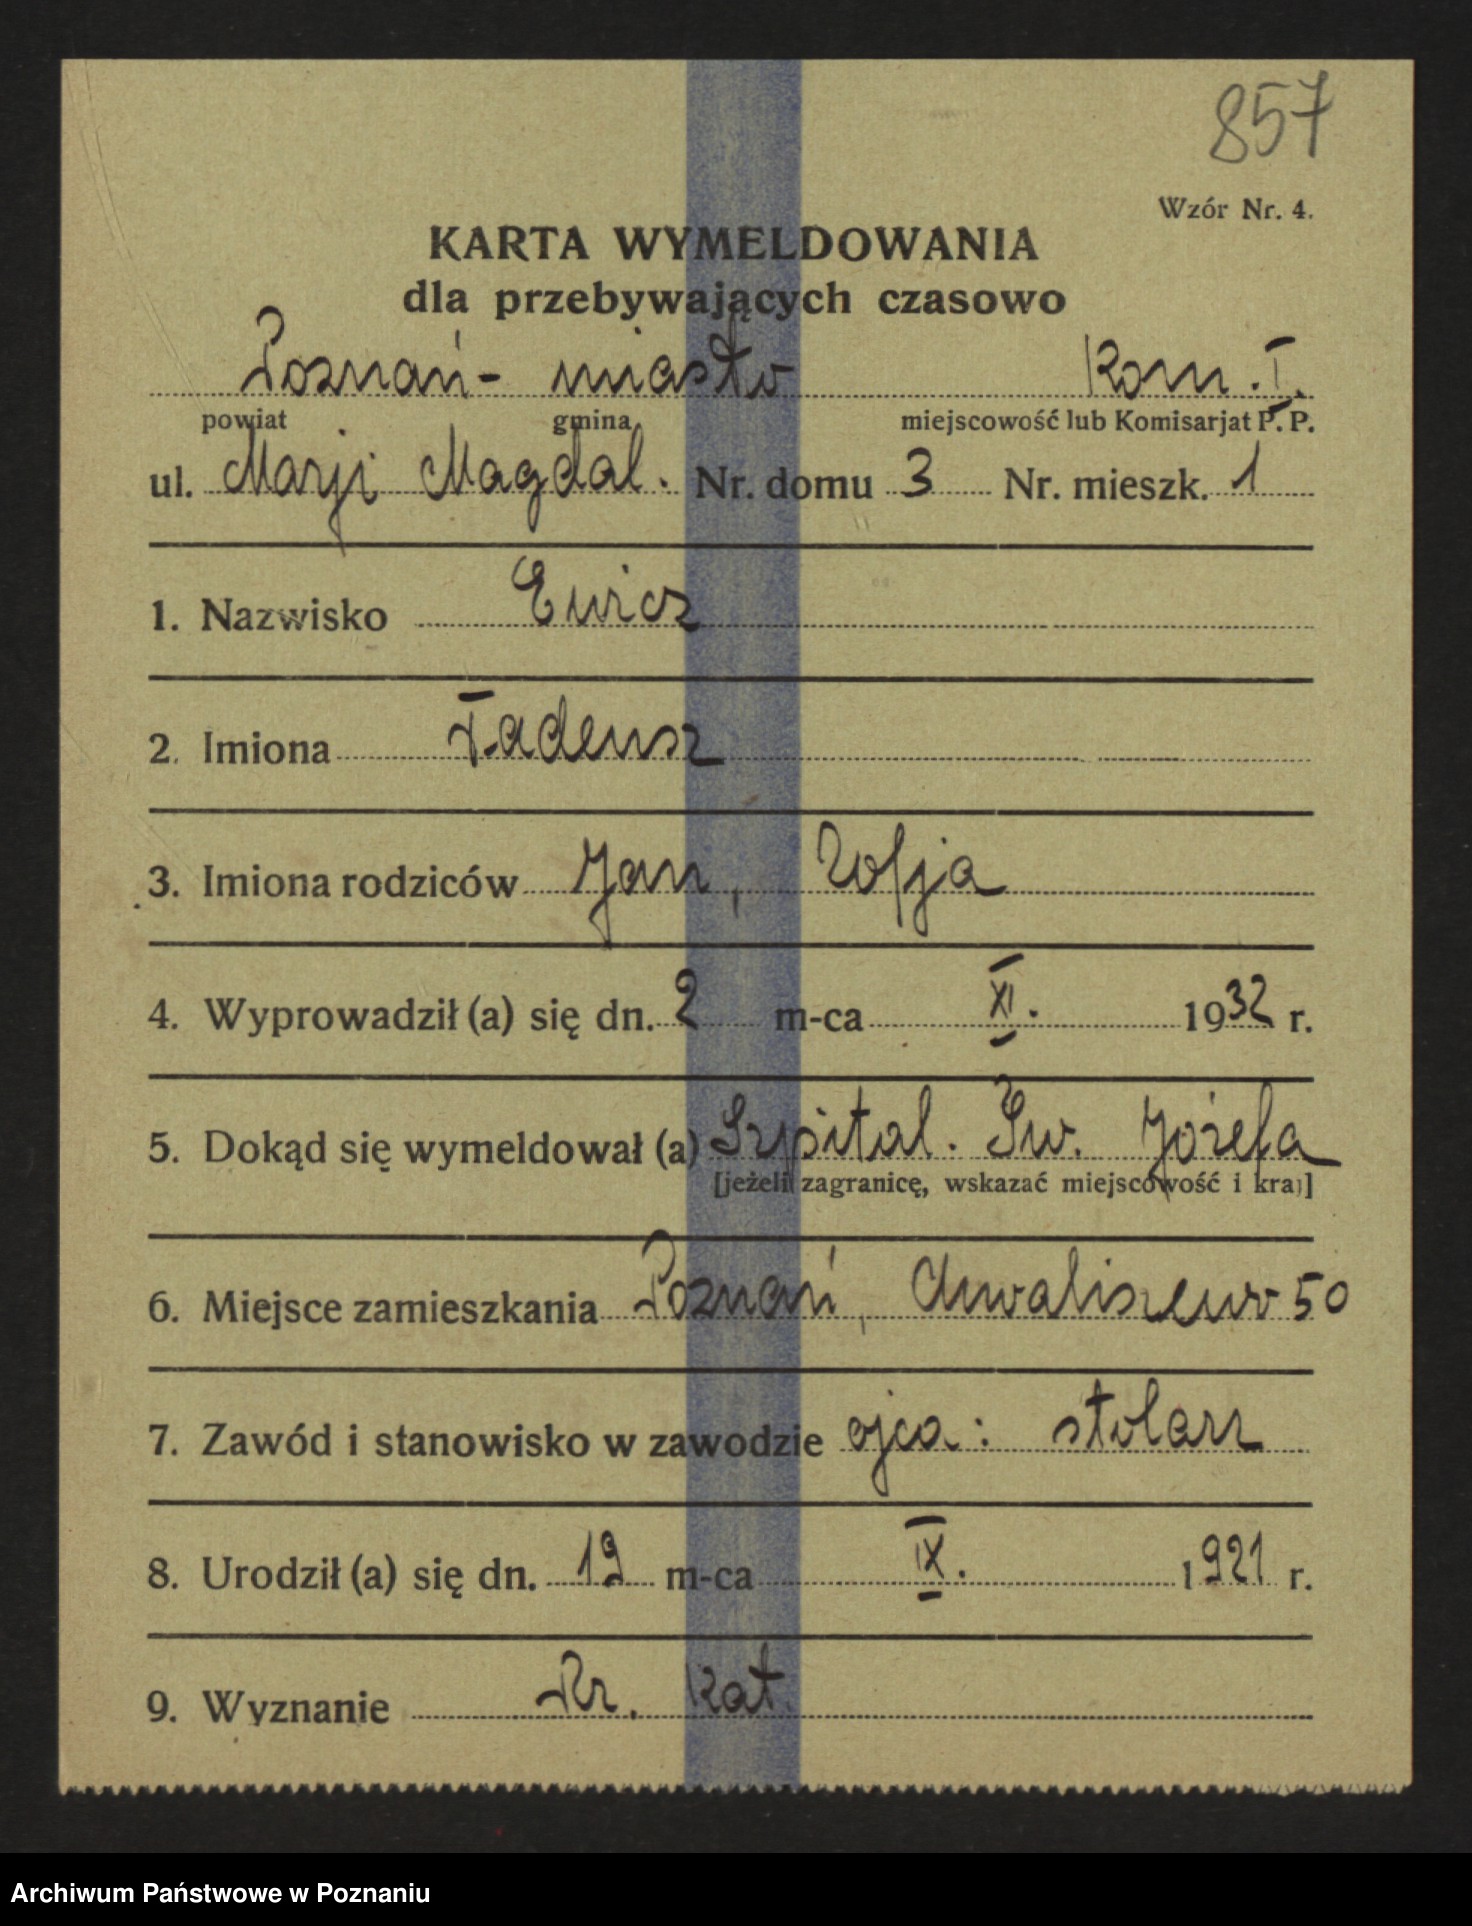 857
Wzór Nr. 4.
KARTA WYMELDOWANIA
dla przebywających czasowo
Poznań - miasto Kom. I.
powiat gmina miejscowość lub Komisarjat P. P.
ul. Marji Magdal. Nr. domu 3 Nr. mieszk. 1
1. Nazwisko Ewicz
2. Imiona Tadeusz
3. Imiona rodziców Jan, Zofja
4. Wyprowadził (a) się dn. 2 m-ca XI. 1932 r.
5. Dokąd się wymeldował (a) Szpital. Św. Józefa
[jeżeli zagranicę, wskazać miejscowość i kraj]
6. Miejsce zamieszkania Poznań, Chwaliszewo 50
7. Zawód i stanowisko w zawodzie ojca: stolarz
8. Urodził (a) się dn. 19 m-ca IX. 1921 r.
9. Wyznanie Rz. kat.
Archiwum Państwowe w Poznaniu